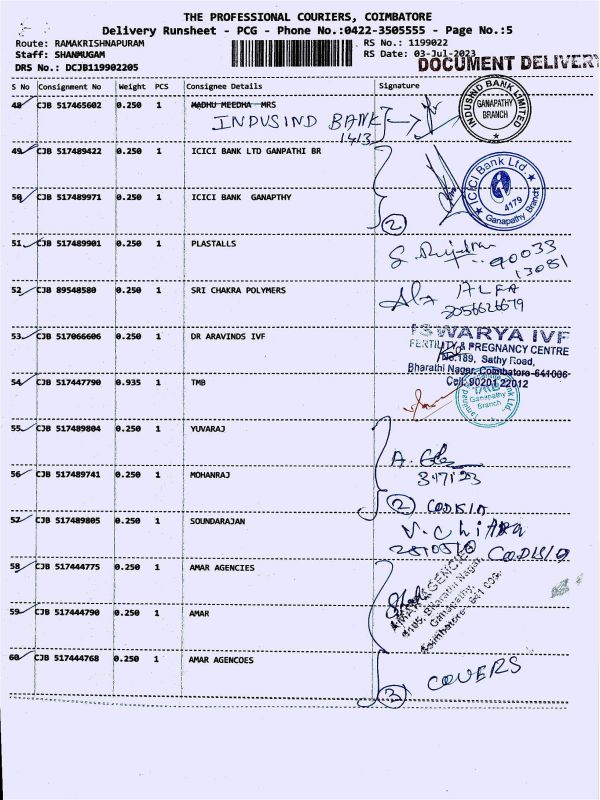 THE PROFESSIONAL COURIERS, COIMBATORE
Delivery Runsheet - PCG - Phone No.:0422-3505555 - Page No.:5
Route: RAMAKRISHNAPURAM RS No.: 1199022
Staff: SHANMUGAM RS Date: 03-Jul-2023
DRS No.: DCJB119902205 DOCUMENT DELIVERY
S No Consignment No Weight PCS Consignee Details Signature
48 CJB 517465602 0.250 1 MADHU MEEDHA MRS
INDUSIND BANK
1413
INDUSIND BANK LIMITED
GANAPATHY
BRANCH
49 CJB 517489422 0.250 1 ICICI BANK LTD GANPATHI BR
ICICI Bank Ltd
4179
Ganapathy Branch
50 CJB 517489971 0.250 1 ICICI BANK GANAPTHY
2
51 CJB 517489901 0.250 1 PLASTALLS
90033
13081
52 CJB 89548580 0.250 1 SRI CHAKRA POLYMERS
ALFA
53 CJB 517066606 0.250 1 DR ARAVINDS IVF
ISWARYA IVF
FERTILITY & PREGNANCY CENTRE
No.189, Sathy Road,
Bharathi Nagar, Coimbatore-641006
Cell: 90201 22012
54 CJB 517447790 0.935 1 TMB
Ganapathy
Branch
55 CJB 517489804 0.250 1 YUVARAJ
56 CJB 517489741 0.250 1 MOHANRAJ
2
57 CJB 517489805 0.250 1 SOUNDARAJAN
58 CJB 517444775 0.250 1 AMAR AGENCIES
AMAR AGENCIES
Bharathi Nagar,
Ganapathy,
Coimbatore
59 CJB 517444790 0.250 1 AMAR
60 CJB 517444768 0.250 1 AMAR AGENCOES
3 COVERS